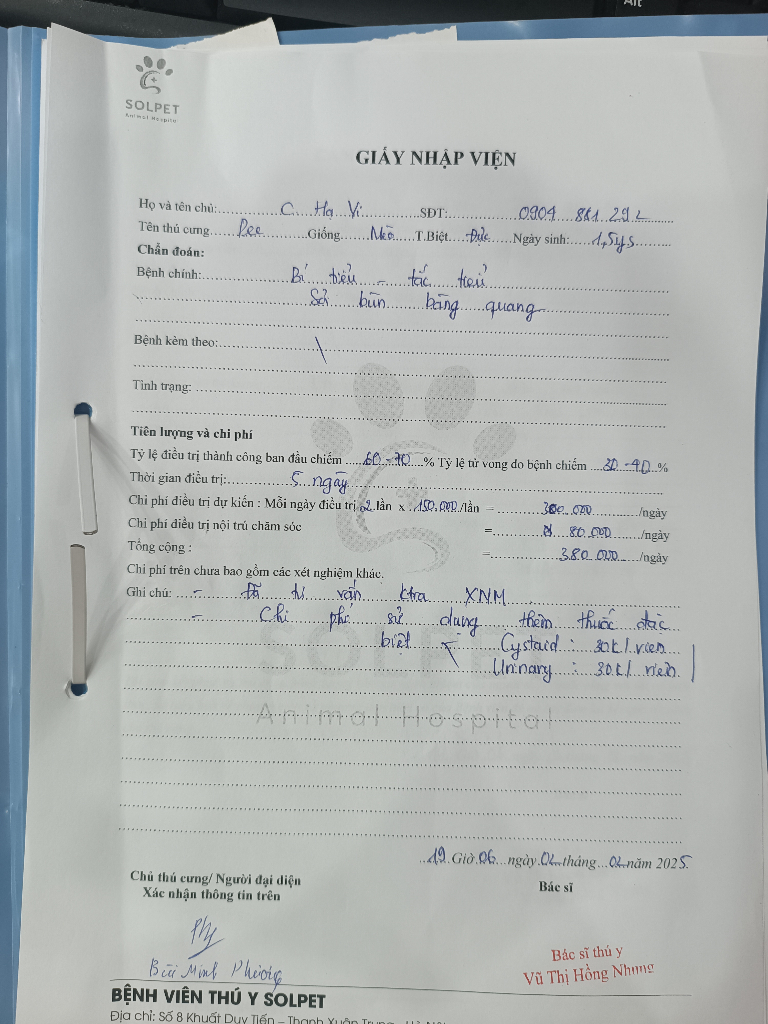 Alt
SOLPET
Animal Hospital
GIẤY NHẬP VIỆN
Họ và tên chủ: C. Hạ Vi SĐT: 0904 881 292
Tên thú cưng Pee Giống Mèo T.Biệt Đực Ngày sinh: 1,5ys
Chẩn đoán:
Bệnh chính: Bí tiểu - tắc tiểu
Sỏi bùn bàng quang
Bệnh kèm theo: \
Tình trạng:
Tiên lượng và chi phí
Tỷ lệ điều trị thành công ban đầu chiếm 60-70 % Tỷ lệ tử vong do bệnh chiếm 30-40 %
Thời gian điều trị: 5 ngày
Chi phí điều trị dự kiến : Mỗi ngày điều trị 2 lần x 150.000 /lần = 300.000 /ngày
Chi phí điều trị nội trú chăm sóc = 80.000 /ngày
Tổng cộng : = 380.000 /ngày
Chi phí trên chưa bao gồm các xét nghiệm khác.
Ghi chú: - Đã tư vấn ktra XNM
- Chi phí sử dụng thêm thuốc đặc
biệt Cystaid : 30k/viên
Urinary : 30k/viên
SOLPET
Animal Hospital
19 Giờ 06 ngày 02 tháng 02 năm 2025.
Chủ thú cưng/ Người đại diện
Xác nhận thông tin trên
Bác sĩ
Bùi Minh Phương
Bác sĩ thú y
Vũ Thị Hồng Nhung
BỆNH VIÊN THÚ Y SOLPET
Địa chỉ: Số 8 Khuất Duy Tiến - Thanh Xuân Trung